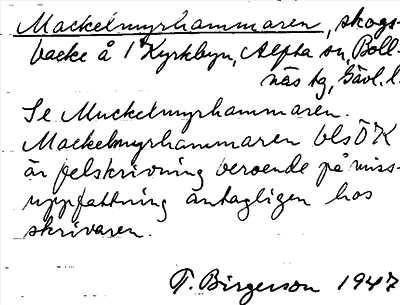 Mackelmyrhammaren, skogs-
backe å 1 Kyrkbyn, Alfta sn, Boll-
näs tg, Gävl. l.
Se Muckelmyrhammaren.
Mackelmyrhammaren bls ÖK
är felskrivning beroende på miss-
uppfattning antagligen hos
skrivaren.
T. Birgerson 1947